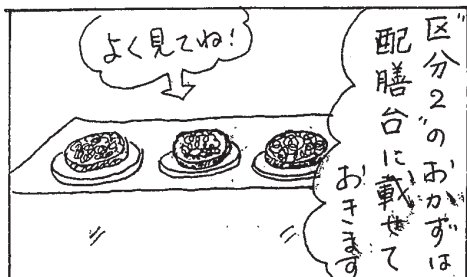 “区分2”のおかずは
配膳台に載せて
おきます
よく見てね!